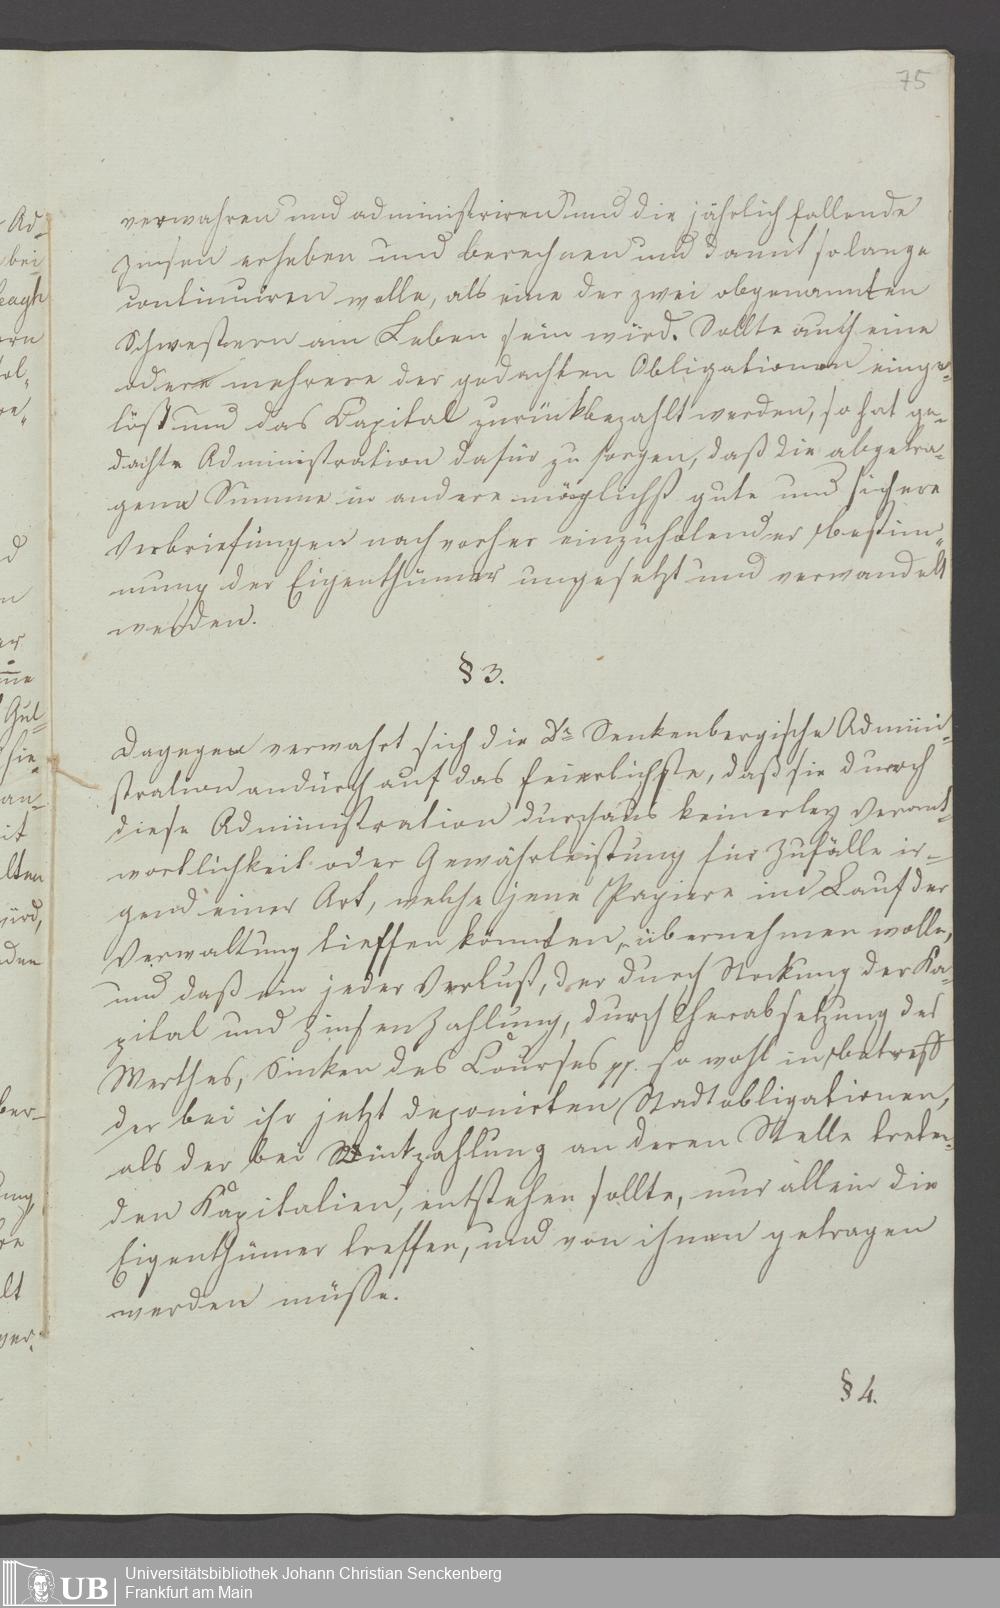 75
verwahren und administriren und die jährlich fallende
Zinsen erheben und berechnen und damit so lange
continuiren wolle, als eine der zwei obgenannten
Schwestern am Leben sein wird. Sollte auch eine
oder mehrere der gedachten Obligationen einge-
löst und das Capital zurückbezahlt werden, so hat ge-
dachte Administration dafür zu sorgen, daß die abgetra-
gene Summe in andere möglichst gute und sichere
Verbriefungen nach vorher einzuholender Bestim-
mung der Eigenthümer umgesetzt und verwandelt
werden.
§ 3.
Dagegen verwahrt sich die Dr. Senkenbergische Admini-
stration andurch auf das feierlichste, daß sie durch
diese Administration durchaus keinerley Verant-
wortlichkeit oder Gewährleistung für Zufälle ir-
gend einer Art, welche jene Papiere im Lauf der
Verwaltung treffen könnten, übernehmen wolle,
und daß ein jeder Verlust, der durch Stockung der Ka-
pital und Zinsenzahlung, durch Herabsetzung des
Werthes, Sinken des Courses pp. so wohl in Betreff
der bei ihr jetzt deponirten Stadtobligationen,
als der bei Rückzahlung an deren Stelle treten-
den Kapitalien, entstehen sollte, nur allein die
Eigenthümer treffen, und von ihnen getragen
werden müsse.
§ 4.
UB
Universitätsbibliothek Johann Christian Senckenberg
Frankfurt am Main